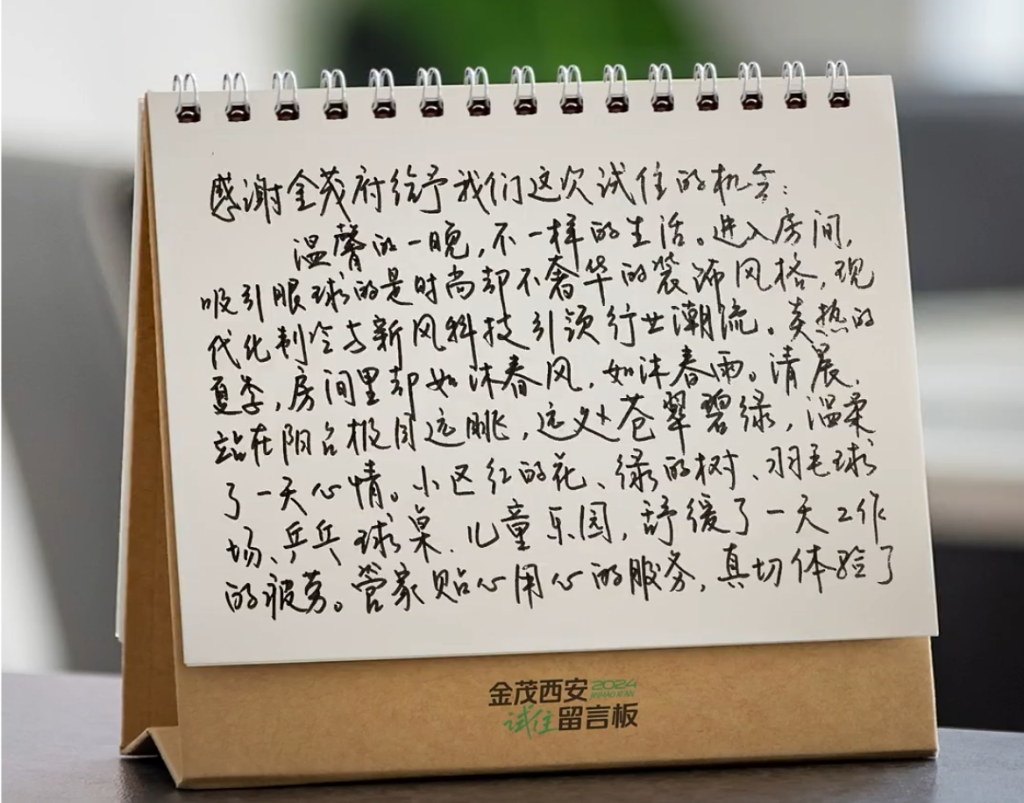 感谢金茂府给予我们这次试住的机会：
温馨的一晚，不一样的生活。进入房间，
吸引眼球的是时尚却不奢华的装饰风格，现
代化制冷与新风科技引领行业潮流。炎热的
夏季，房间里却如沐春风，如沐春雨。清晨，
站在阳台极目远眺，远处苍翠碧绿，温柔
了一天心情。小区红的花、绿的树、羽毛球
场、乒乓球桌、儿童乐园，舒缓了一天工作
的疲劳。管家贴心用心的服务，真切体验了
金茂西安 2024
试住留言板